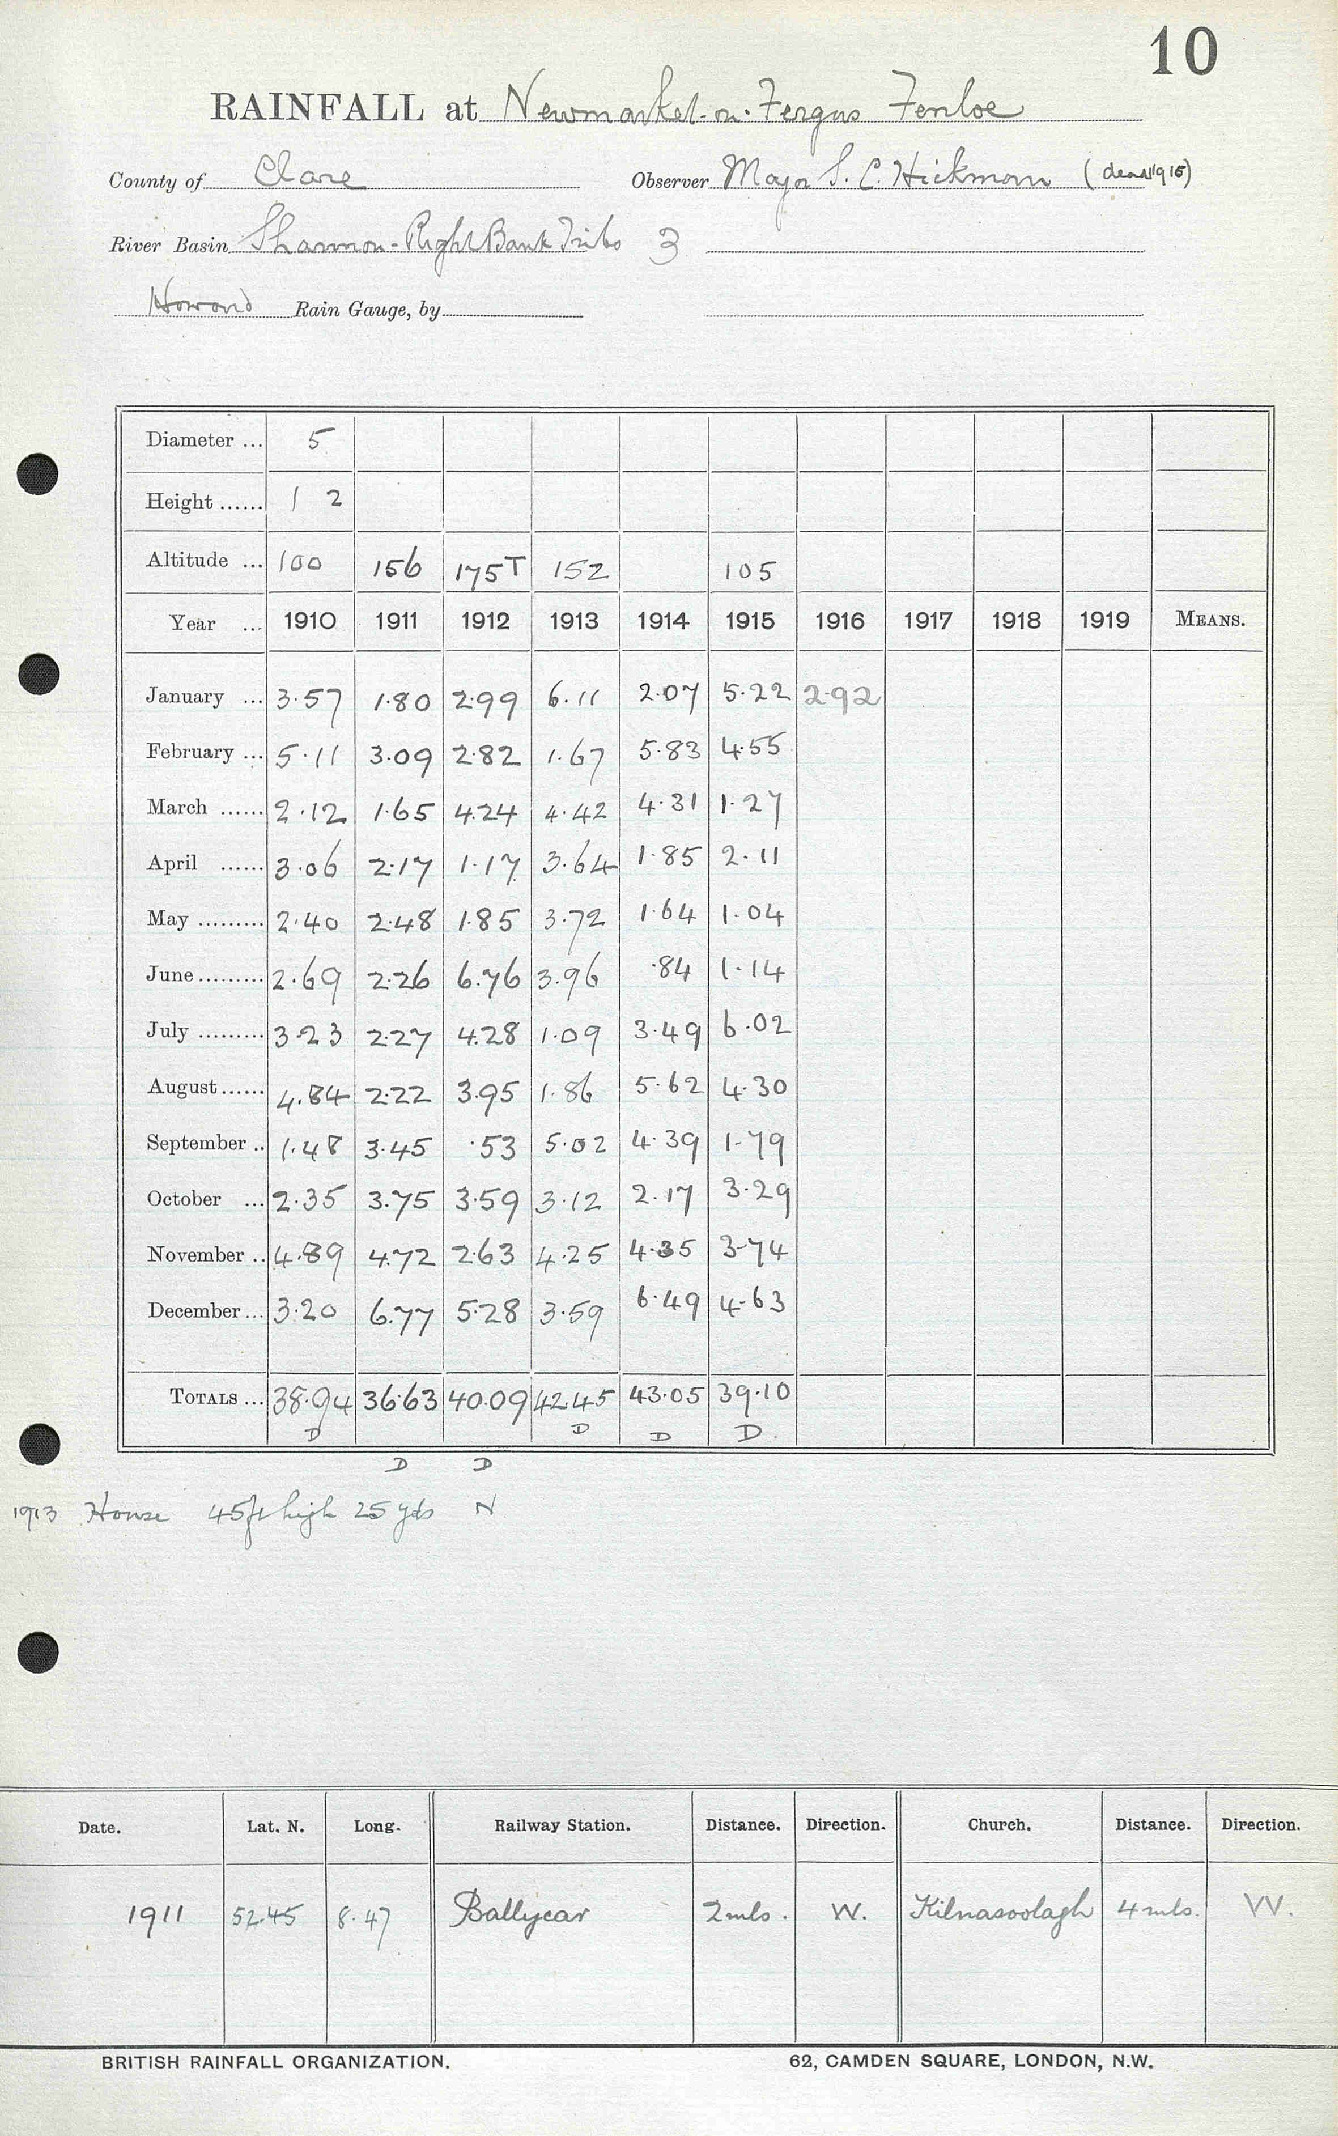 10
RAINFALL at Newmarket-on-Fergus Fenloe
County of Clare Observer Major S. C. Hickman (dead 1916)
River Basin Shannon-Right Bank Tribs 3
Howard Rain Gauge, by
Diameter ... 5
Height ...... 1 2
Altitude ... 100 156 175T 152 105
Year ... 1910 1911 1912 1913 1914 1915 1916 1917 1918 1919 MEANS.
January ... 3.57 1.80 2.99 6.11 2.07 5.22 2.92
February ... 5.11 3.09 2.82 1.67 5.83 4.55
March ...... 2.12 1.65 4.24 4.42 4.31 1.27
April ...... 3.06 2.17 1.17 3.64 1.85 2.11
May ......... 2.40 2.48 1.85 3.72 1.64 1.04
June ......... 2.69 2.26 6.76 3.96 .84 1.14
July ......... 3.23 2.27 4.28 1.09 3.49 6.02
August ...... 4.84 2.22 3.95 1.86 5.62 4.30
September .. 1.48 3.45 .53 5.02 4.39 1.79
October ... 2.35 3.75 3.59 3.12 2.17 3.29
November .. 4.89 4.72 2.63 4.25 4.35 3.74
December ... 3.20 6.77 5.28 3.59 6.49 4.63
TOTALS ... 38.94 36.63 40.09 42.45 43.05 39.10
D D D D
D D
1913 House 45ft high 25 yds N
Date. Lat. N. Long. Railway Station. Distance. Direction. Church. Distance. Direction.
1911 52.45 8.47 Ballycar 2 mls. W. Kilnasoolagh 4 mls. W.
BRITISH RAINFALL ORGANIZATION. 62, CAMDEN SQUARE, LONDON, N.W.